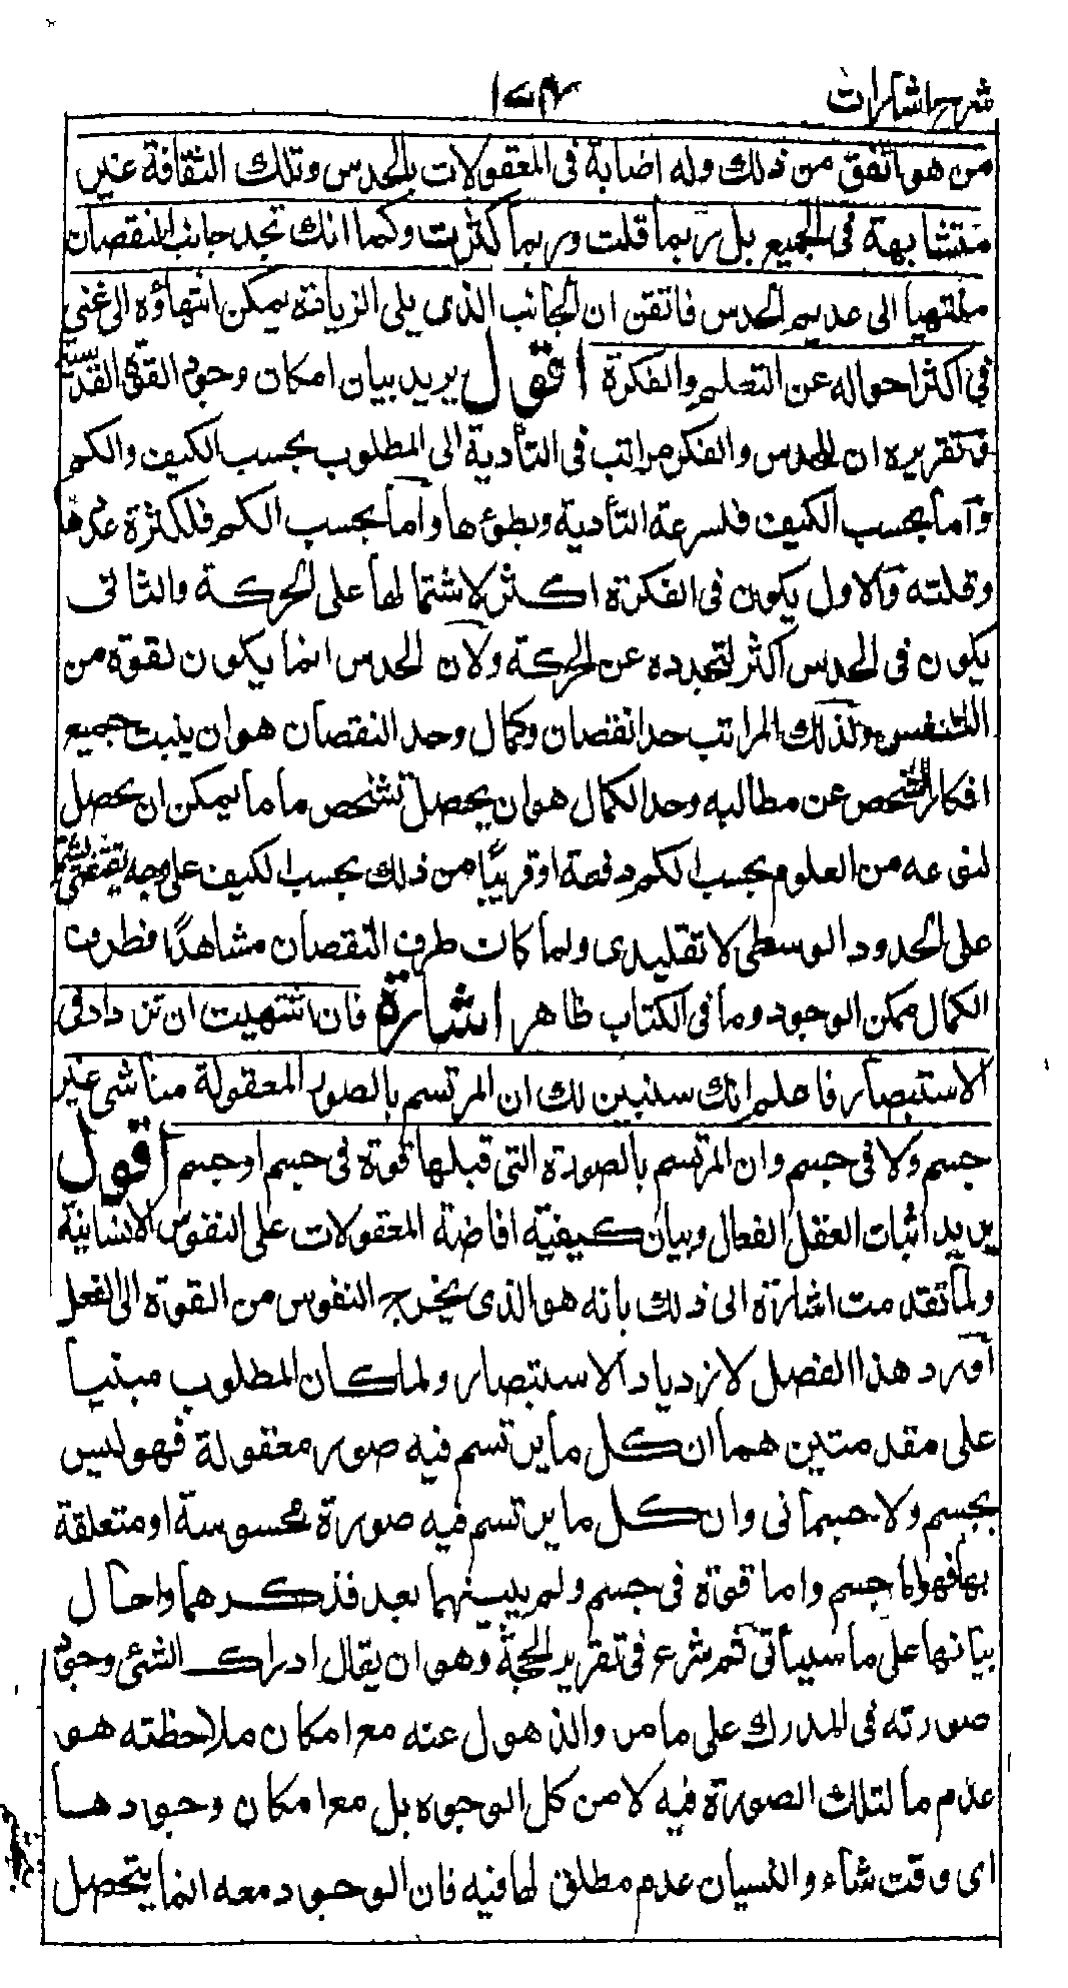 شرح اشارات
من هو اثقف من ذلك وله اضابة فى المعقولات بالحدس وتلك الثقافة غير
متشابهة فى الجميع بل ربما قلت وربما كثرت وكما انك تجد جانب النقصان
منتهيا الى عديم الحدس فاتقن ان الجانب الذى يلى الزيادة يمكن انتهاؤه الى غنى
فى اكثر احواله عن التعلم والفكرة اقول يريد بيان امكان وجود القوة القدسية
وتقريره ان للحدس والفكر مراتب فى التأدية الى المطلوب بحسب الكيف والكم
وآما بحسب الكيف فلسرعة التأدية وبطؤها وآما بحسب الكم فلكثرة عددها
وقلته والاول يكون فى الفكرة اكثر لاشتمالها على الحركة والثانى
يكون فى الحدس اكثر لتجرده عن الحركة ولان الحدس انما يكون لقوة من
النفس ولذلك المراتب حد انقضان وكمال وحد النقصان هو ان ينبت جميع
افكار الشخص عن مطالبه وحد الكمال هو ان يحصل تشخص ما ما يمكن ان يحصل
لنوعه من العلوم بحسب الكم دفعة او قريبًا من ذلك بحسب الكيف على وجه يقينى
على الحدود الوسطى لا تقليدى ولما كان طرف النقصان مشاهدًا فطرف
الكمال ممكن الوجود وما فى الكتاب ظاهر اشارة فان اشتهيت ان تزداد فى
الاستبصار فاعلم انك سنبين لك ان المرتسم بالصور المعقولة منا شى غير
جسم ولا فى جسم وان المرتسم بالصورة التى قبلها قوة فى جسم او جسم اقول
يريد اثبات العقل الفعال وبيان كيفية افاضة المعقولات على النفوس الانسانية
ولما تقدمت اشارة الى ذلك بانه هو الذى يخرج النفوس من القوة الى الفعل
آورد هذا الفصل لازدياد الاستبصار ولما كان المطلوب مبنيا
على مقدمتين هما ان كل ما يرتسم فيه صور معقولة فهو ليس
بجسم ولا جسمانى وان كل ما يرتسم فيه صورة محسوسة او متعلقة
بها فهو اما جسم واما قوة فى جسم ولم يبينهما بعد فذكرهما واحال
بيانها على ما سيأتى ثم شرع فى تقرير الحجة وهو ان يقال ادراك الشئ وجود
صورته فى المدرك على ما مر والذهول عنه مع امكان ملاحظته هو
عدم ما لتلك الصورة فيه لا من كل الوجوه بل مع امكان وجودها
اى وقت شاء والنسيان عدم مطلق لها فيه فان الوجود معه انما يتحصل